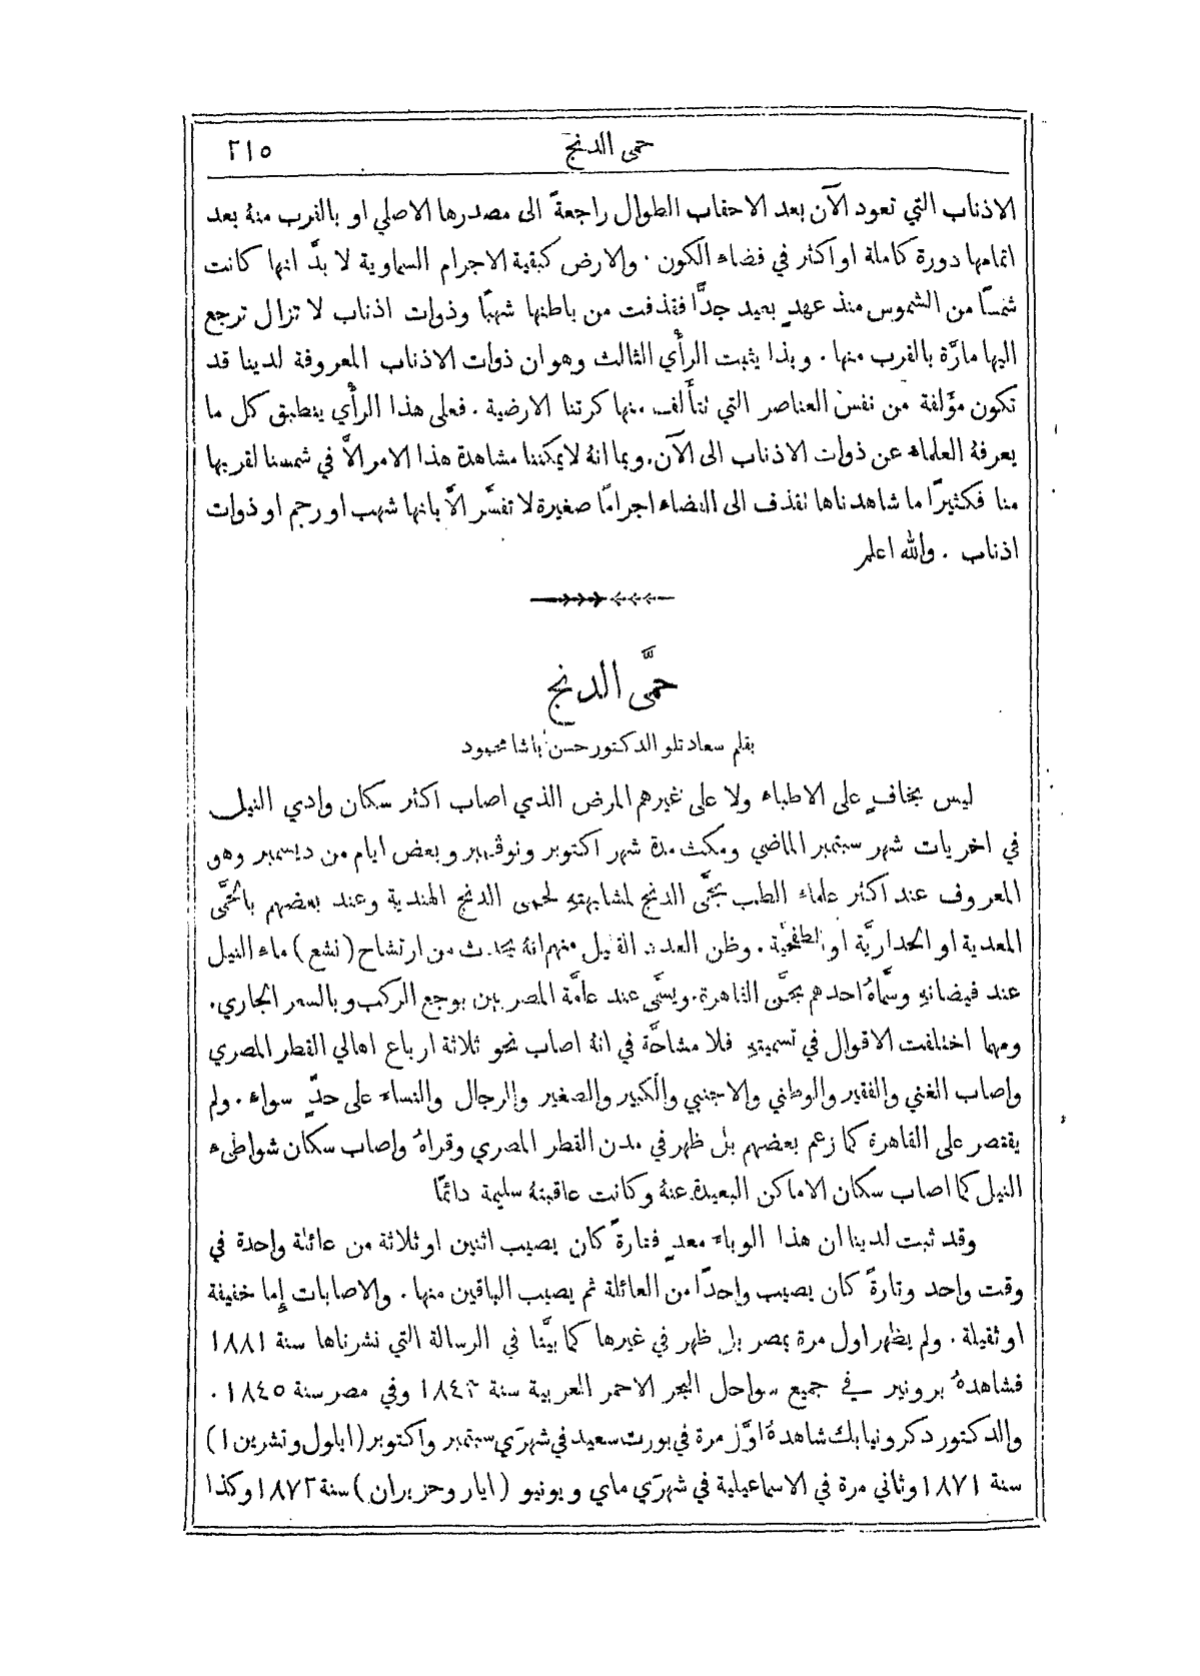 حمى الدنج ٢١٥
الاذناب التي تعود الآن بعد الاحقاب الطوال راجعةً الى مصدرها الاصلي او بالقرب منهُ بعد
اتمامها دورة كاملة او اكثر في فضاء الكون . والارض كبقية الاجرام السماوية لا بدَّ انها كانت
شمسًا من الشموس منذ عهدٍ بعيد جدًّا فقذفت من باطنها شهبًا وذوات اذناب لا تزال ترجع
اليها مارَّة بالقرب منها . وبذا يثبت الرأي الثالث وهو ان ذوات الاذناب المعروفة لدينا قد
تكون مؤَلفة من نفس العناصر التي تتأَلف منها كرتنا الارضية . فعلى هذا الرأي ينطبق كل ما
يعرفهُ العلماء عن ذوات الاذناب الى الآن . وبما انهُ لا يمكننا مشاهدة هذا الامر الاَّ في شمسنا لقربها
منا فكثيرًا ما شاهدناها تقذف الى الفضاء اجرامًا صغيرة لا تفسَّر الاَّ بانها شهب او رجم او ذوات
اذناب . والله اعلم
حمَّى الدنج
بقلم سعادتلو الدكتور حسن باشا محمود
ليس بخافٍ على الاطباء ولا على غيرهم المرض الذي اصاب اكثر سكان وادي النيل
في اخريات شهر سبتمبر الماضي ومكث مدة شهر اكتوبر ونوڤمبر وبعض ايام من ديسمبر وهو
المعروف عند اكثر علماء الطب بحمَّى الدنج لمشابهتهِ لحمى الدنج الهندية وعند بعضهم بالحمَّى
المعدية او الحداريَّة او الطفحيَّة . وظن العدد القليل منهم انهُ يحدث من ارتشاح (نشع) ماء النيل
عند فيضانهِ وسمَّاهُ احدهم بحمَّى القاهرة . ويسمَّى عند عامَّة المصريين بوجع الركب وبالسعر الجاري .
ومهما اختلفت الاقوال في تسميتهِ فلا مشاحَّة في انهُ اصاب نحو ثلاثة ارباع اهالي القطر المصري
واصاب الغني والفقير والوطني والاجنبي والكبير والصغير والرجال والنساء على حدٍّ سواء . ولم
يقتصر على القاهرة كما زعم بعضهم بل ظهر في مدن القطر المصري وقراهُ واصاب سكان شواطىء
النيل كما اصاب سكان الاماكن البعيدة عنهُ وكانت عاقبتهُ سليمة دائمًا
وقد ثبت لدينا ان هذا الوباء معدٍ فتارةً كان يصيب اثنين او ثلاثة من عائلة واحدة في
وقت واحد وتارةً كان يصيب واحدًا من العائلة ثم يصيب الباقين منها . والاصابات إِما خفيفة
او ثقيلة . ولم يظهر اول مرة بمصر بل ظهر في غيرها كما بيَّنا في الرسالة التي نشرناها سنة ١٨٨١
فشاهدهُ برونير في جميع سواحل البحر الاحمر العربية سنة ١٨٤٣ وفي مصر سنة ١٨٤٥ .
والدكتور دكرونيا بك شاهدهُ اوَّل مرة في بورت سعيد في شهرَي سبتمبر واكتوبر (ايلول وتشرين ١)
سنة ١٨٧١ وثاني مرة في الاسماعيلية في شهرَي ماي ويونيو (ايار وحزيران) سنة ١٨٧٢ وكذا